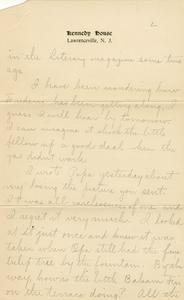 2
Kennedy House
Lawrenceville, N. J.
in the Literary magazine some time
ago.
I have been wondering how
has been getting along, I
guess I will hear by tomorrow.
I can imagine it shook the little
fellow up a good deal when the
gas didn't work.
I wrote Papa yesterday about
my losing the picture you sent.
It was all carelessness of me and
I regret it very much. I looked
at it just once and knew it was
taken when Opa still had the fine
tulip tree by the fountain. By the
way, how is the little Balsam Fir
on the terrace doing? All the